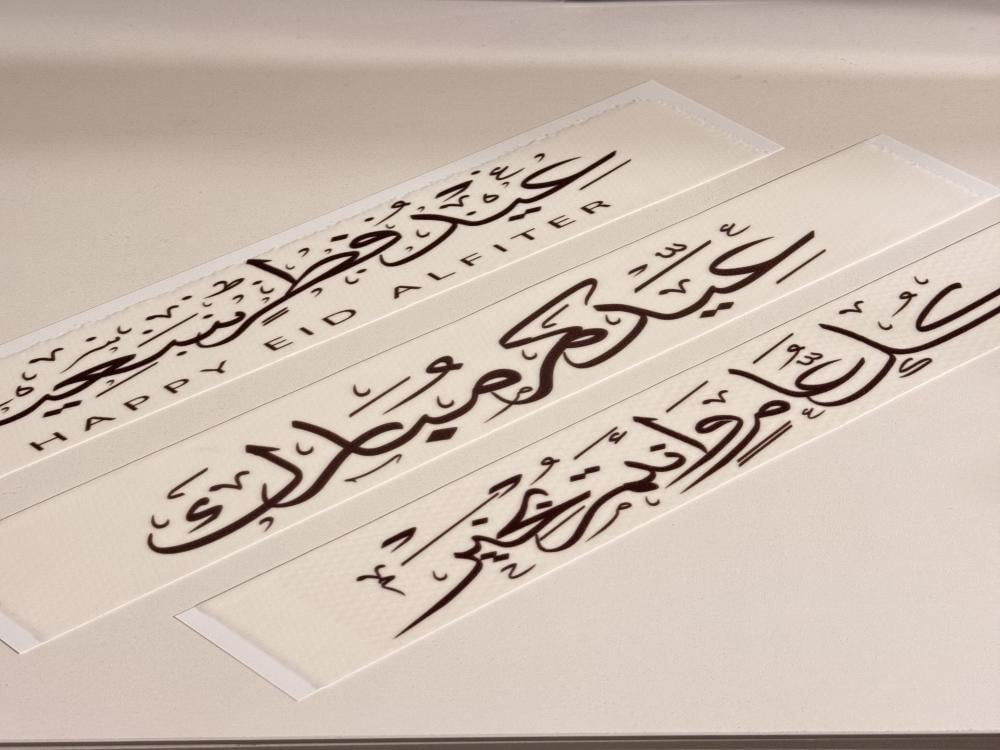 عيد فطر سعيد
HAPPY EID ALFITER
عيدكم مبارك
كل عام وانتم بخير